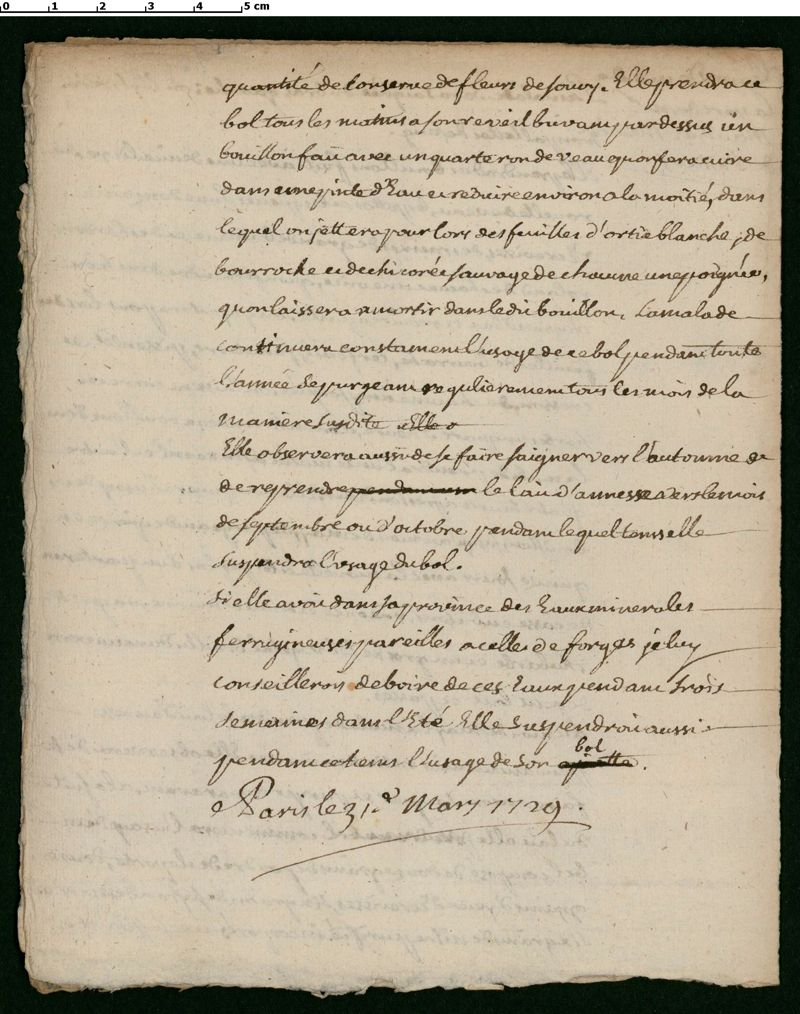 0 1 2 3 4 5 cm
quantité de conserve de fleurs de soucy. Elle prendra ce
bol tous les matins a son reveil buvant par dessus un
bouillon fait avec un quarteron de veau qu'on fera cuire
dans une pinte d'Eau et reduire environ a la moitié, dans
lequel on jettera pour lors des feuilles d'ortie blanche, de
bourroche et de chicorée sauvage de chacune une poignée,
qu'on laissera amortir dans le dit bouillon. La malade
continuera constament l'usage de ce bol pendant toute
l'année se purgeant regulierement tous les mois de la
maniere susdite Elle o
Elle observera aussi de se faire saigner vers l'automne et
de reprendre pendant un le lait d'annesse vers le mois
de septembre ou d'octobre pendant lequel tems elle
suspendra l'usage du bol.
Si elle avoit dans sa province des Eaux minerales
ferrugineuses pareilles a celle de forges je luy
conseillerois de boire de ces Eaux pendant trois
semaines dans l'Eté Elle suspendroit aussi
pendant ce tems l'usage de son bol.
A Paris le 31.e Mars 1729.